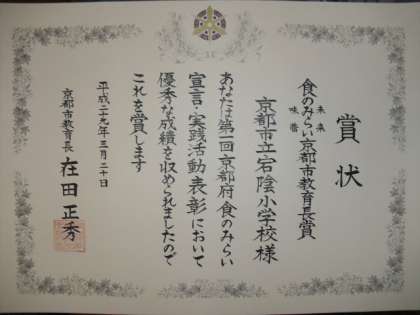 賞状
食のみらい京都市教育長賞
未来
味蕾
京都市立宕陰小学校様
あなたは第一回京都府食のみらい
宣言・実践活動表彰において
優秀な成績を収められましたので
これを賞します
平成二十九年三月二十日
京都市教育長 在田正秀